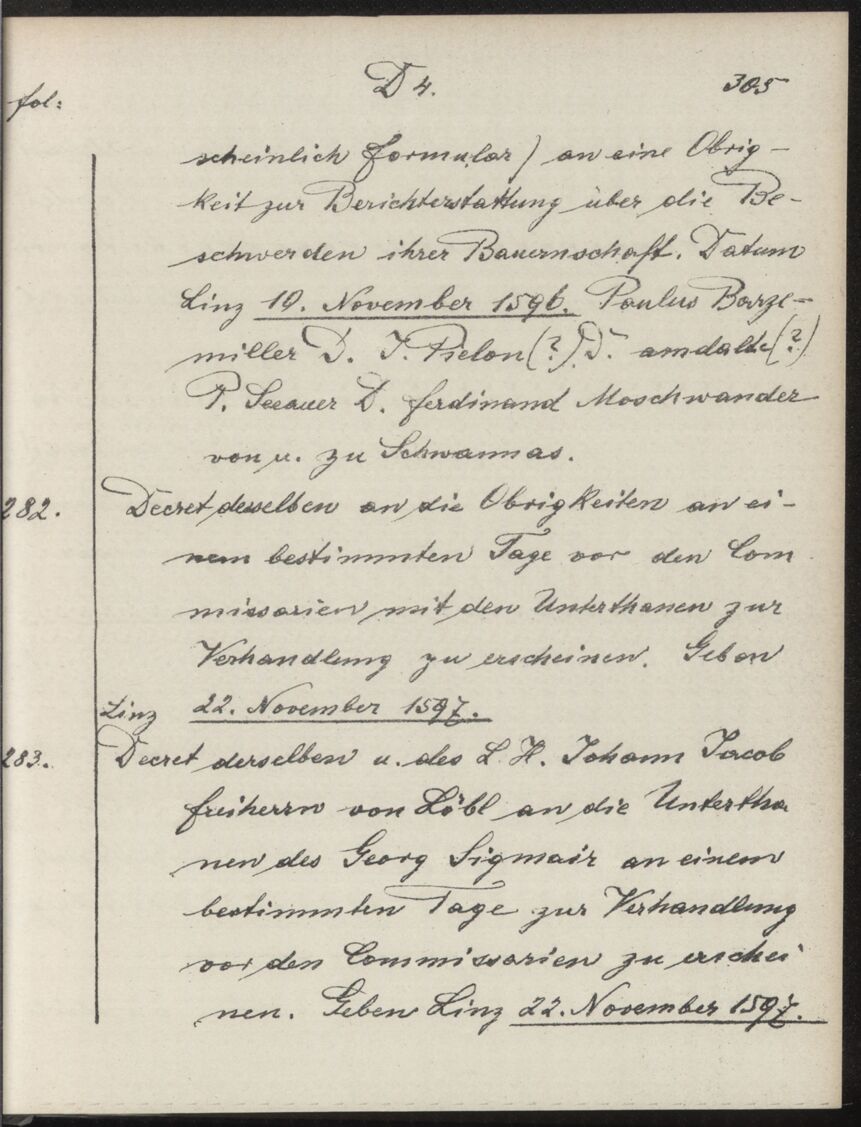 D 4. 305
fol:
scheinlich Formular) an eine Obrig-
keit zur Berichterstattung über die Be-
schwerden ihrer Bauernschaft. Datum
Linz 19. November 1596. Paulus Barze-
miller D. J. Pielon (?) D. amdalte (?)
P. Seeauer D. Ferdinand Moschwander
von u. zu Schwannas.
282. Decret desselben an die Obrigkeiten an ei-
nem bestimmten Tage vor den Com
missarien mit den Unterthanen zur
Verhandlung zu erscheinen. Geben
Linz 22. November 1597.
283. Decret derselben u. des L. H. Johann Jacob
Freiherrn von Löbl an die Untertha
nen des Georg Sigmair an einem
bestimmten Tage zur Verhandlung
vor den Commissarien zu erschei
nen. Geben Linz 22. November 1597.